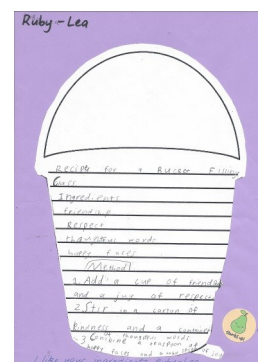 Ruby-Lea
Recipe for a Bucket Filling
Class
Ingredients
friendship
Respect
thoughtful words
happy faces
Method
1. Add a cup of friendship
and a jug of respect
2. Stir in a carton of
kindness and a container
of thoughtful words
3. Combine a teaspoon of
happy faces and a
I like your